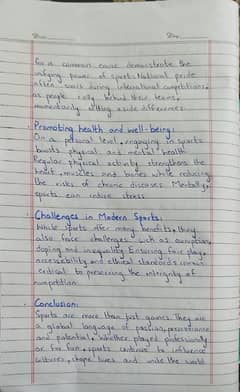 for a common cause demonstrate the
unifying power of sports. National pride
often soars during international competitions,
as people rally behind their teams,
momentarily setting aside differences.
Promoting health and well-being:
On a personal level, engaging in sports
boosts physical and mental health
Regular physical activity strengthens the
heart, muscles and bones while reducing
the risks of chronic diseases. Mentally,
sports can relive stress
Challenges in Modern Sports:
While sports offer many benefits, they
also face challenges such as corruption,
doping and inequality. Ensuring fair play,
accessability and ethical standards remain
critical to preserving the intrigrity of
competition.
Conclusion:
Sports are more than just games. They are
a global language of passion, perseverance
and potential. Whether played professionally
or for fun, sports continue to influence
cultures, shape lives and unite the world